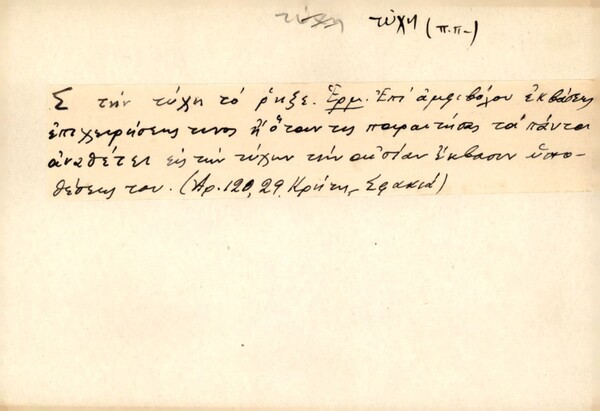 τύχη τύχη (π.π-)
Σ τὴν τύχη τό ῥηξε. Ἑρμ. Ἐπί ἀμφιβόλου ἐκβάσεως
ἐπιχειρήσεως τινος ἤ ὅταν τις παραιτήσας τά πάντα
ἀναθέτει εἰς τὴν τύχην τὴν αἰσίαν ἔκβασιν ὑπο-
θέσεώς του. (Ἀρ. 120, 29. Κρήτη, Σφακιά)